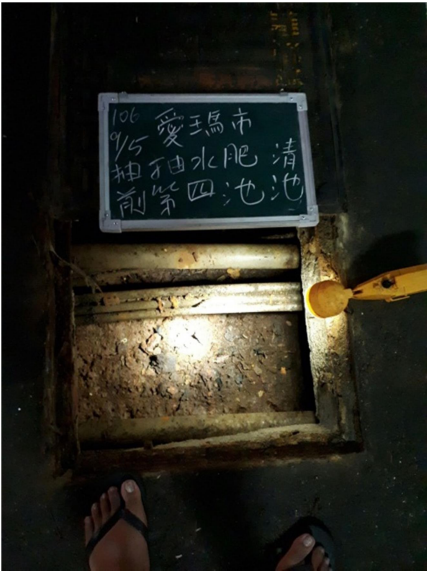 106
9/5 愛瑪市
抽抽水肥 清
前第四池 池